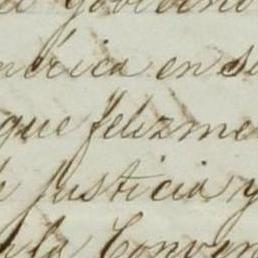 el gobierno
mérica en su
que felizme
Justicia y
la Conven